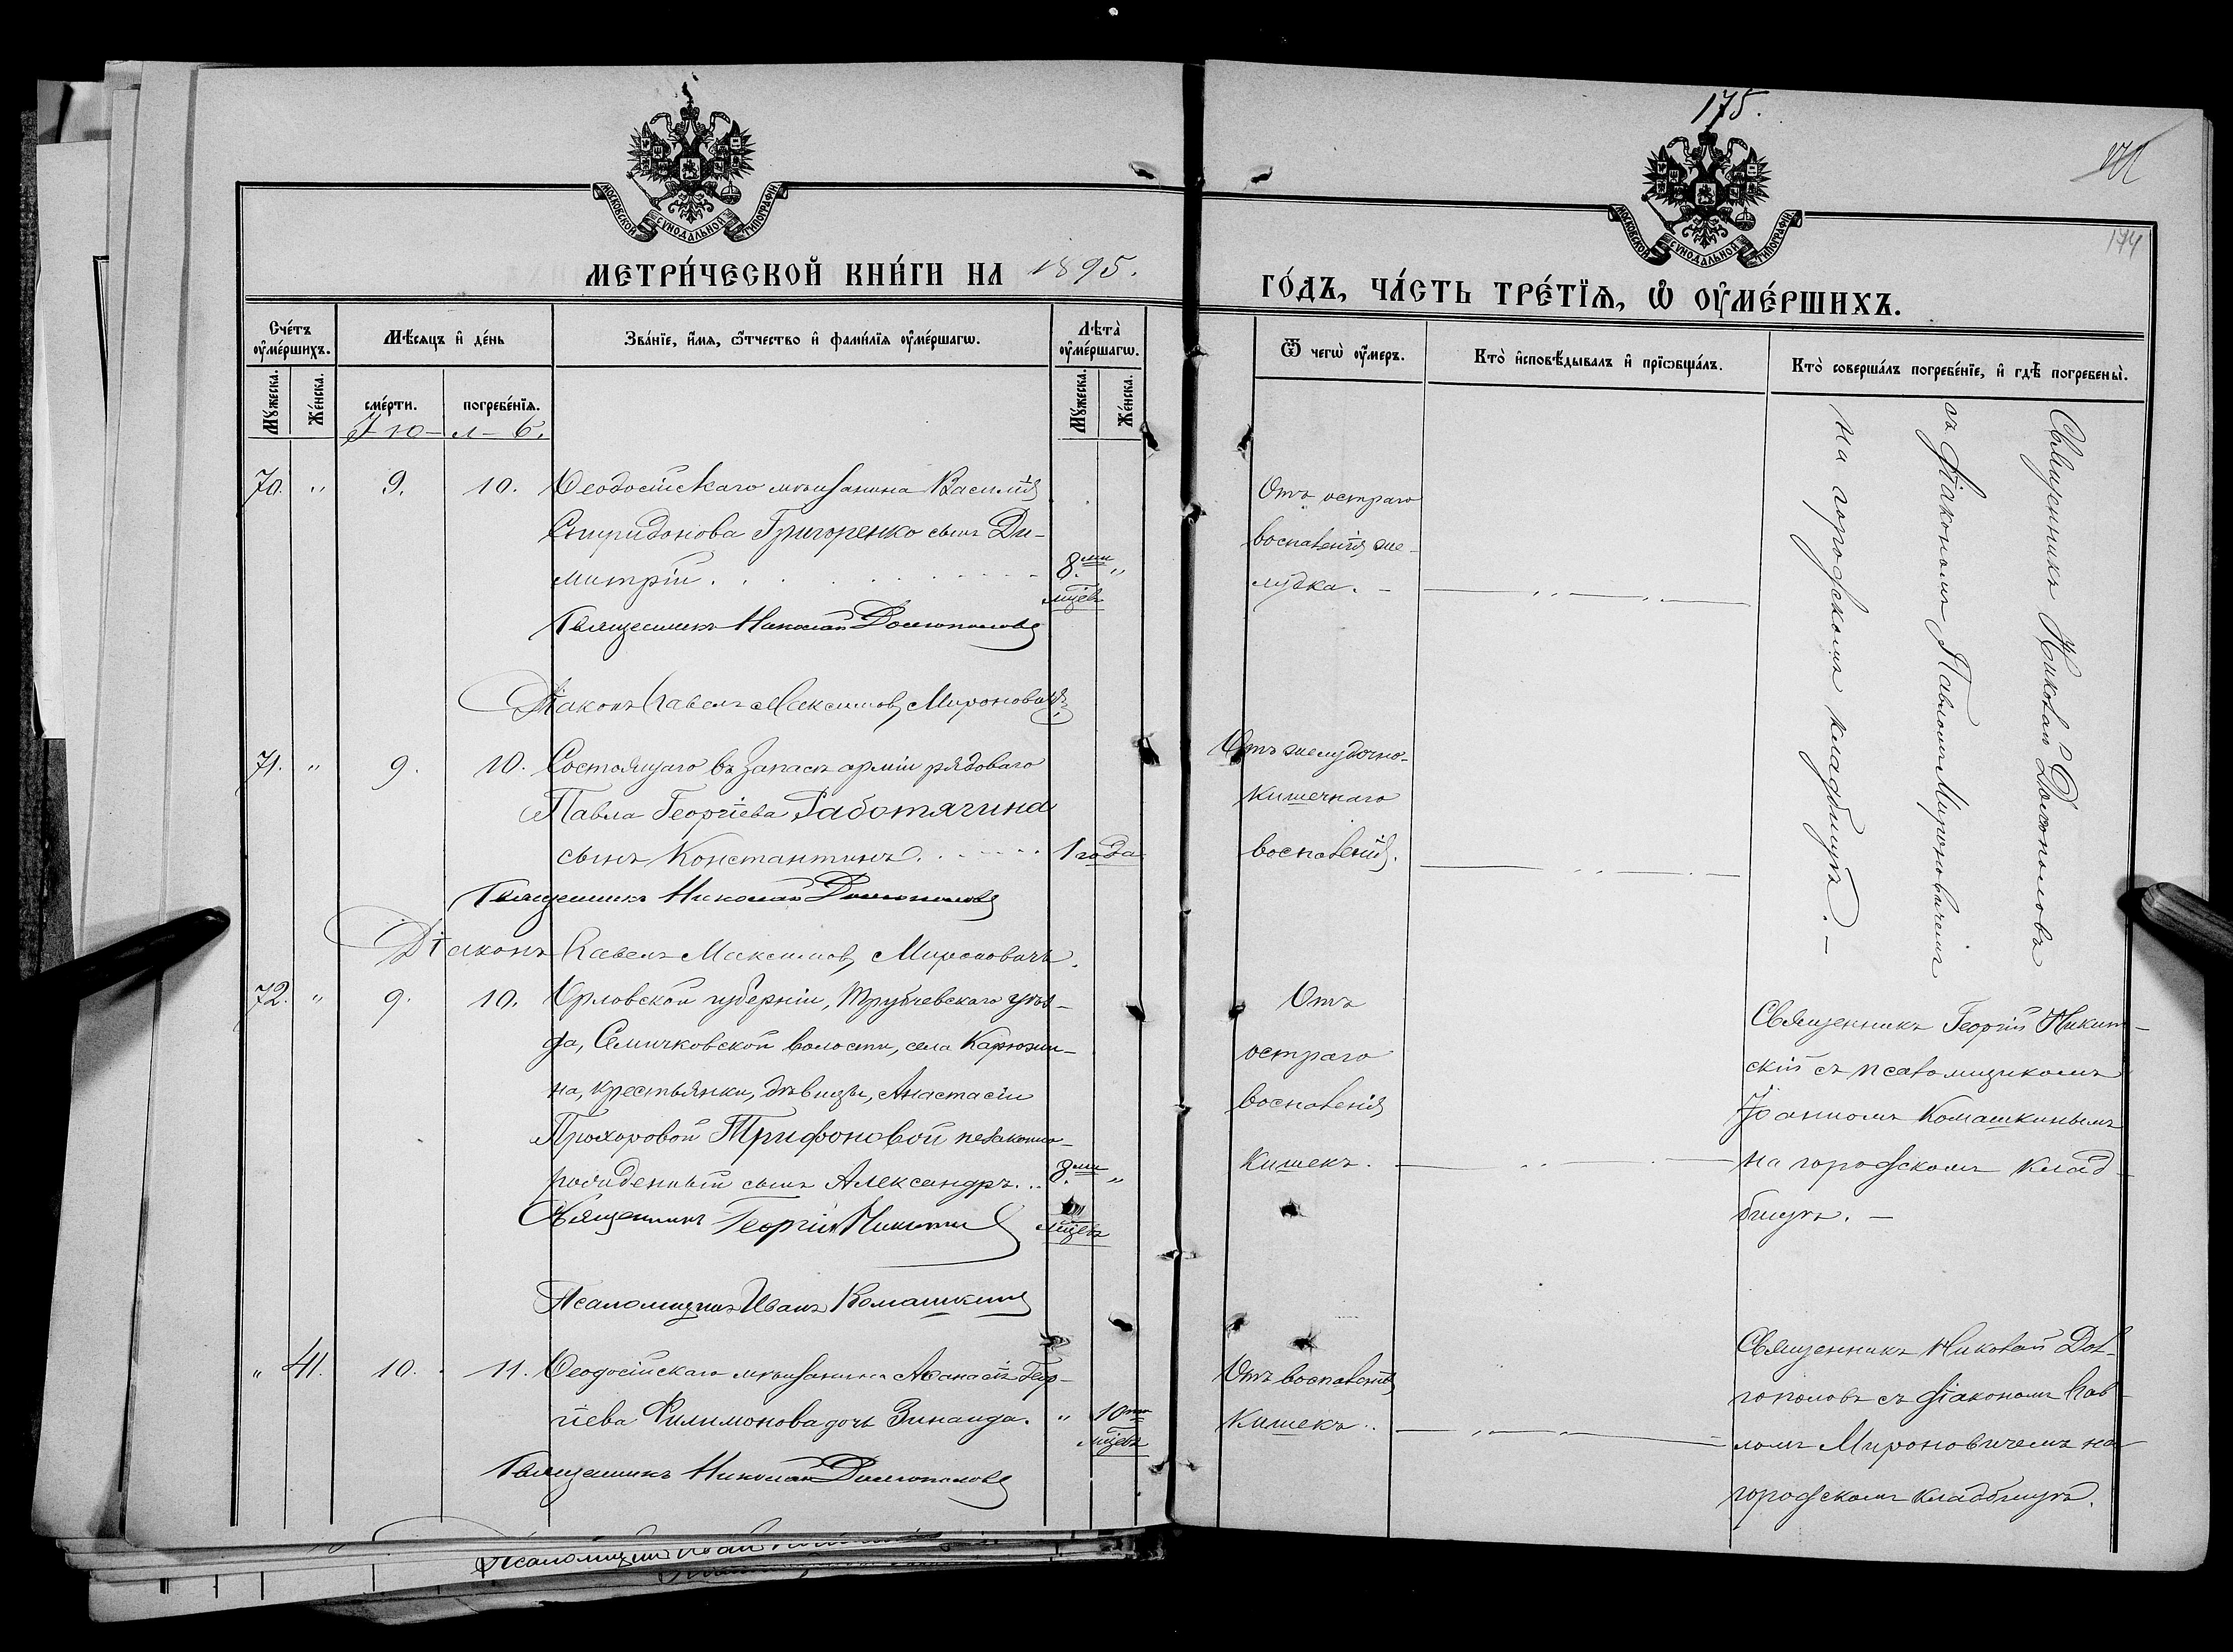 175.
174
МОСКОВСКОЙ СѴНОДАЛЬНОЙ ТИПОГРАФІИ
МОСКОВСКОЙ СѴНОДАЛЬНОЙ ТИПОГРАФІИ
МЕТРИ́ЧЕСКОЙ КНИ́ГИ НА 1895.
ГО́ДЪ, ЧА́СТЬ ТРЕ́ТЇѦ, Ѡ҆ ОУ҆МЕ́РШИХЪ.
Сче́тъ оу҆ме́ршихъ.
Мѣ́сяцъ и҆ де́нь
Зва́нїе, и҆́мя, ѻ҆́тчество и҆ фами́лїя оу҆ме́ршагѡ.
Лѣта̀ оу҆ме́ршагѡ.
Ѿ чегѡ̀ оу҆́меръ.
Кто̀ и҆сповѣ́дывалъ и҆ прїѡбща́лъ.
Кто̀ соверша́лъ погребе́нїе, и҆ гдѣ̀ погребены̀.
Мꙋ́жеска. Же́нска. сме́рти. погребе́нїя. Мꙋ́жеска. Же́нска.
І-ю-л-ь.
70. " 9. 10. Ѳеодосійскаго мѣщанина Василія
Спиридонова Григоренко сынъ Ди-
митрій. 8.ми "
мцевъ
Священникъ Николай Долгополовъ
Діаконъ Павелъ Максимовъ Мироновичъ
Отъ остраго
воспаленія же-
лудка.
Священникъ Николай Долгополовъ
съ діакономъ Павломъ Мироновичемъ
на городскомъ кладбищѣ.
71. " 9. 10. Состоящаго въ запасѣ арміи рядоваго
Павла Георгіева Работягина
сынъ Константинъ. 1 года
Священникъ Николай Долгополовъ
Діаконъ Павелъ Максимовъ Мироновичъ.
Отъ желудочно-
кишечнаго
воспаленія.
72. " 9. 10. Орловской губерніи, Трубчевскаго уѣз-
да, Семичковской волости, села Карюжи-
на, крестьянки, дѣвицы, Анастасіи
Прохоровой Трифоновой незаконно-
рожденный сынъ Александръ. 8.ми "
мцевъ
Священникъ Георгій Никитскій
Псаломщикъ Иванъ Комашкинъ
Отъ
остраго
воспаленія
кишекъ.
Священникъ Георгій Никит-
скій съ псаломщикомъ
Іоанномъ Комашкинымъ
на городскомъ клад-
бищѣ.
" 41. 10. 11. Ѳеодосійскаго мѣщанина Аѳанасія Геор-
гіева Филимонова дочь Зинаида. " 10ти
мцевъ
Священникъ Николай Долгополовъ
Отъ воспаленія
кишекъ.
Священникъ Николай Дол-
гополовъ съ діакономъ Пав-
ломъ Мироновичемъ на
городскомъ кладбищѣ.
Псаломщикъ Иванъ